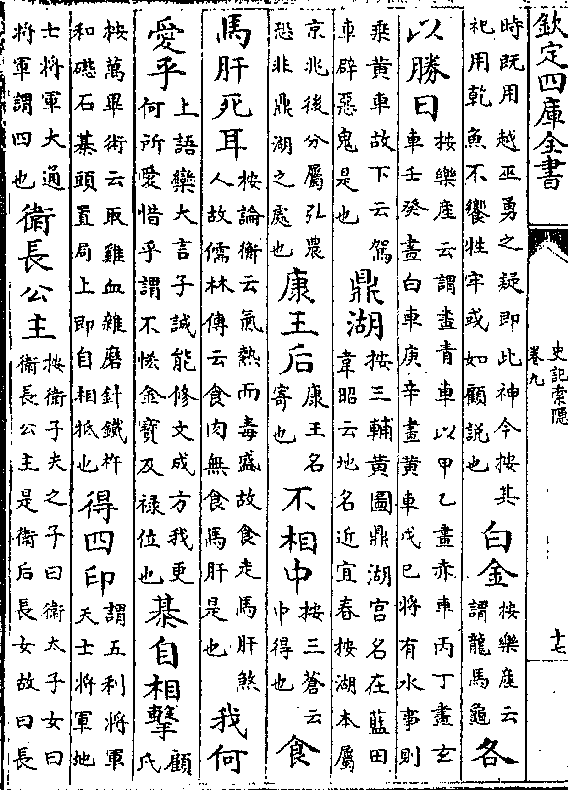 欽定四庫全書
史記索隱
卷九
十七
時既用越巫勇之疑即此神今按其
祀用乾魚不饗牲牢或如顧説也
白金
按樂産云
謂龍馬龜
各
以勝日
按樂産云謂畫青車以甲乙畫赤車丙丁畫玄
車壬癸畫白車庚辛畫黄車戊巳將有水事則
乗黄車故下云駕
車辟惡鬼是也
鼎湖
按三輔黄圖鼎湖宫名在藍田
韋昭云地名近宜春按湖本屬
京兆後分屬弘農
恐非鼎湖之處也
康王后
康王名
寄也
不相中
按三蒼云
中得也
食
馬肝死耳
按論衡云氣熱而毒盛故食走馬肝煞
人故儒林傳云食肉無食馬肝是也
我何
愛乎
上語欒大言子誠能修文成方我更
何所愛惜乎謂不悋金寶及禄位也
棊自相擊
顧
氏
按萬畢術云取雞血雜磨針鐵杵
和礠石棊頭置局上即自相抵也
得四印
謂五利將軍
天士將軍地
士將軍大通
將軍謂四也
衛長公主
按衛子夫之子曰衛太子女曰
衛長公主是衛后長女故曰長